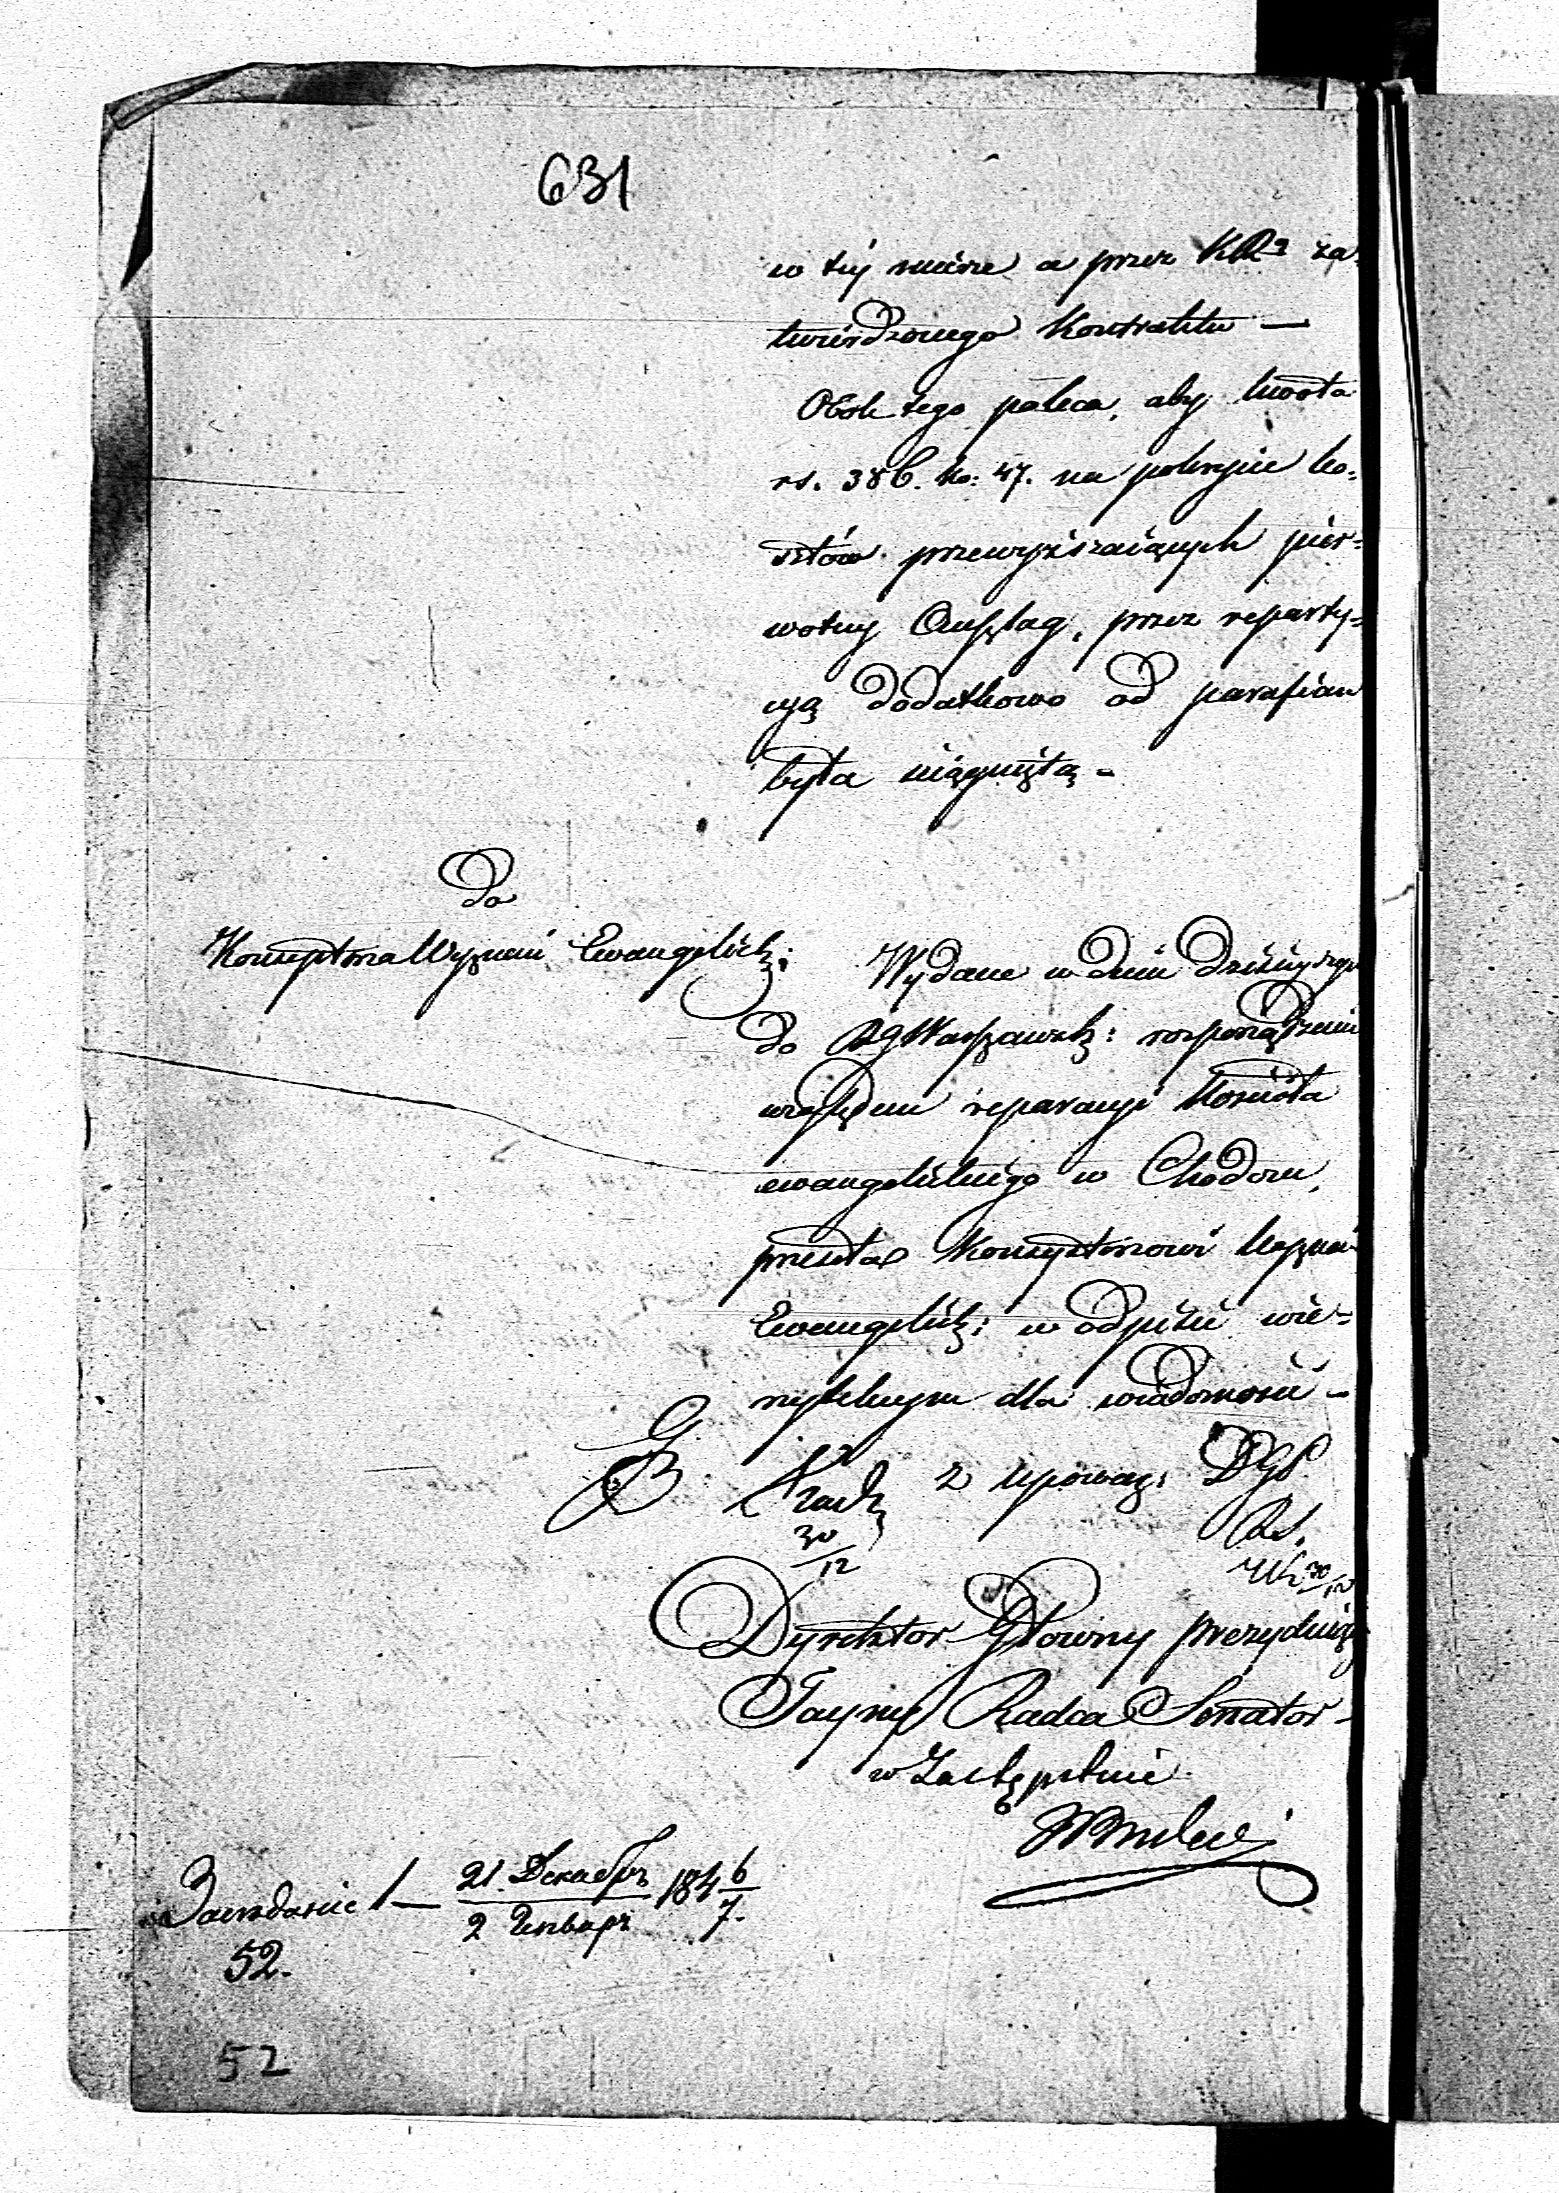 631
w téj mierze a przez KRą za-
twierdzonego Kontraktu —
Obok tego poleca, aby kwota
rs. 386. ko: 47. na pokrycie ko-
sztów przewyższaiących pier-
wotny Anszlag, przez reparty-
cyą dodatkowo od parafian
była ściągniętą -
Do
Konsystorza Wyznań Ewangelick:
Wydane w dniu dzisiejszym
do RGWarszawsk: rozporządzenie
względem reparacyi Kościoła
ewangelickiego w Chodczu,
przesła Konsystorzowi Wyznań
Ewangelick: w odpisie wie-
rzytelnym dla wiadomości -
z upoważ: DGP.
30/12
30/12
Dyrektor Główny prezydujący
Tayny Radca Senator -
w Zastępstwie
Заседание 1 — 21 Декабрь / 2 Январь 1846/7.
52.
52